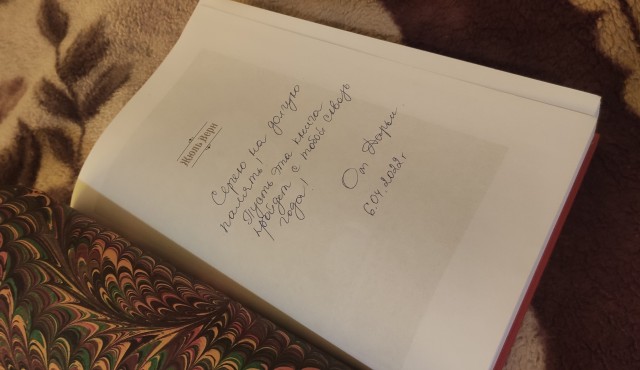 Жюль Верн
Сергею на долгую
память!
Пусть эта книга
пройдет с тобой сквозь
года!
От Дарьи
6.04.2022г.